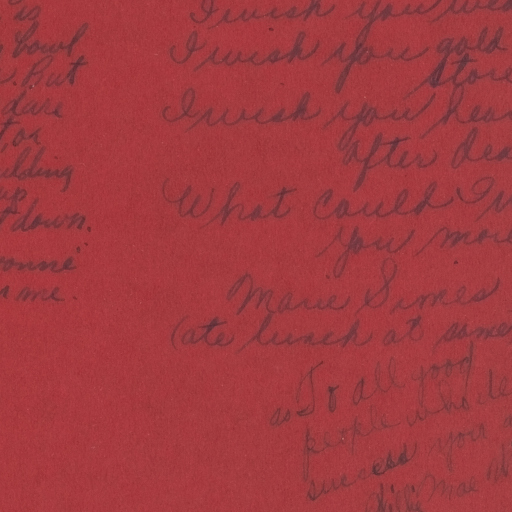 is
bowl
. But
dare
t, or
uilding
up
t down.
vonne
n me.
I wish you
I wish you gold
store
I wish you
after
What could I
you
Marie Simes
(ate lunch at same
To all good
as people who
success your
Willie Mae